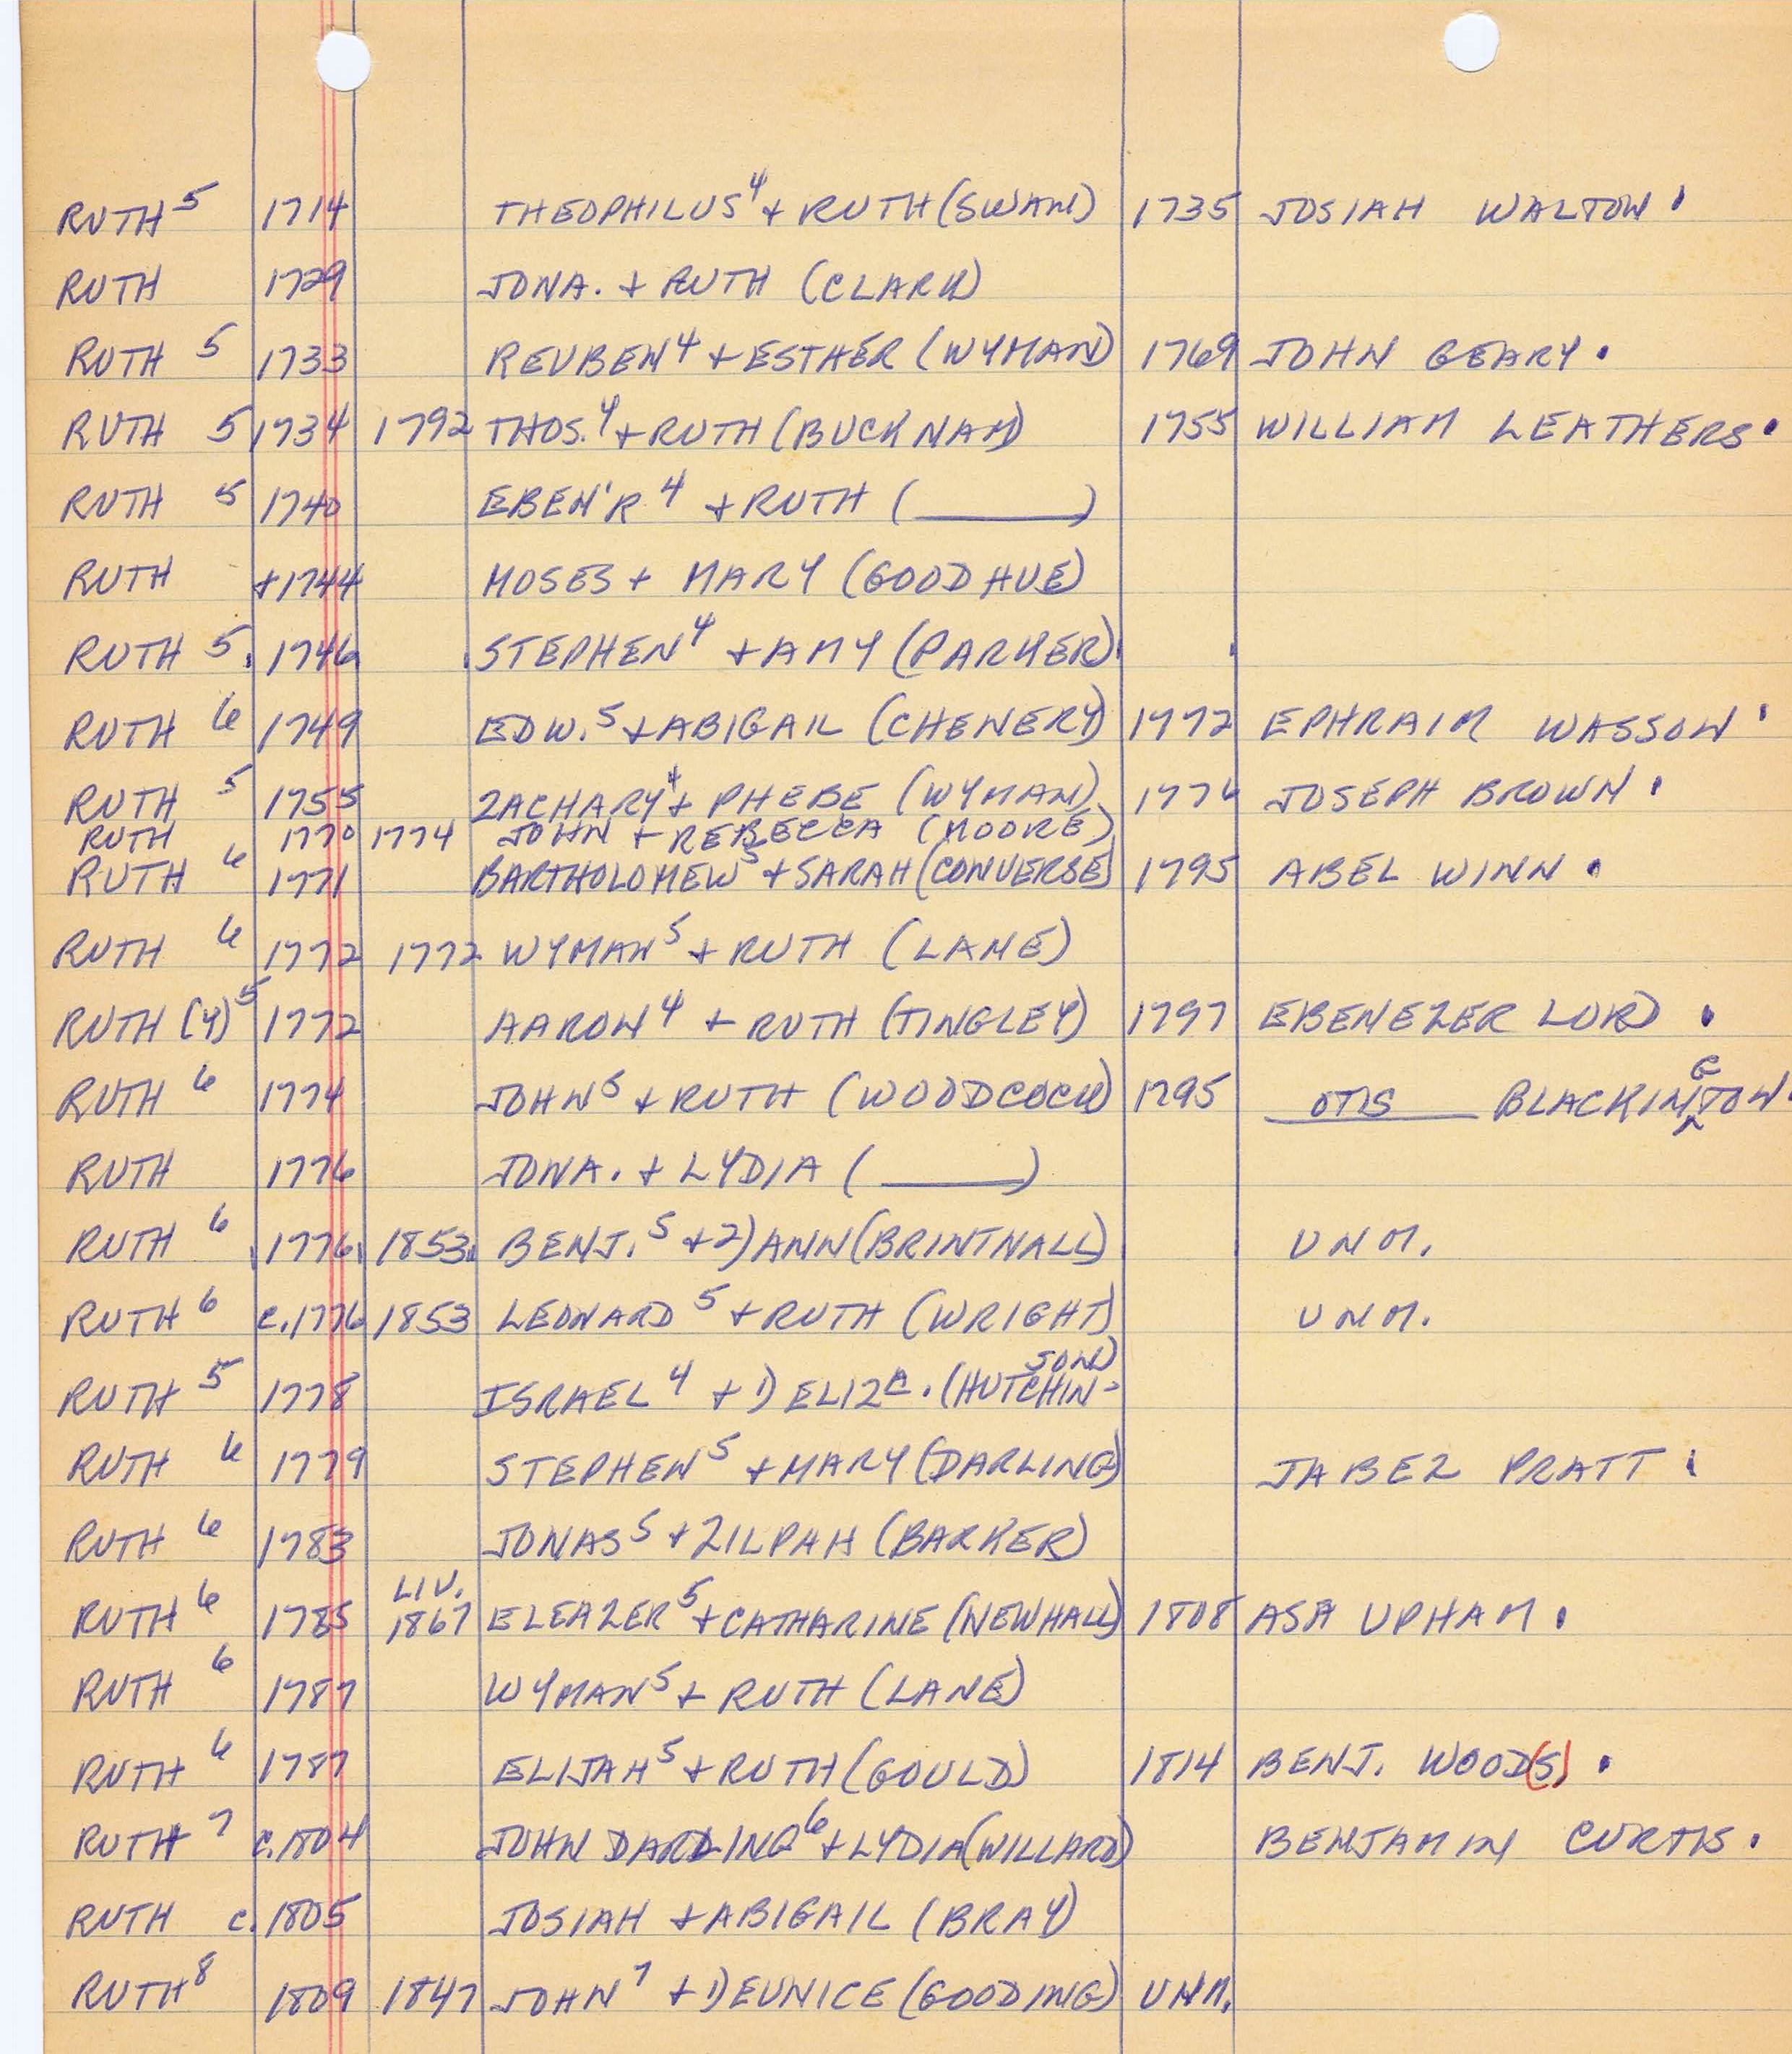 RUTH 5 1714 THEOPHILUS 4 + RUTH (SWAN) 1735 JOSIAH WALTON.
RUTH 1729 JONA. + RUTH (CLARK)
RUTH 5 1733 REUBEN 4 + ESTHER (WYMAN) 1769 JOHN GEARY.
RUTH 5 1734 1792 THOS. 4 + RUTH (BUCKNAM) 1755 WILLIAM LEATHERS.
RUTH 5 1740 EBEN'R 4 + RUTH (______)
RUTH +1744 MOSES + MARY (GOODHUE)
RUTH 5. 1746 STEPHEN 4 + AMY (PARKER)
RUTH 6 1749 EDW. 5 + ABIGAIL (CHENERY) 1772 EPHRAIM WASSON.
RUTH 5 1755 ZACHARY 4 + PHEBE (WYMAN) 1776 JOSEPH BROWN.
RUTH 1770 1774 JOHN + REBECCA (MOORE)
RUTH 6 1771 BARTHOLOMEW 5 + SARAH (CONVERSE) 1795 ABEL WINN.
RUTH 6 1772 1772 WYMAN 5 + RUTH (LANE)
RUTH (4) 5 1772 AARON 4 + RUTH (TINGLEY) 1797 EBENEZER LORD.
RUTH 6 1774 JOHN 5 + RUTH (WOODCOCK) 1795 OTIS BLACKINGTON.
RUTH 1776 JONA. + LYDIA (______)
RUTH 6 1776 1853 BENJ. 5 + 2) ANN (BRINTNALL) UNM.
RUTH 6 c.1776 1853 LEONARD 5 + RUTH (WRIGHT) UNM.
RUTH 5 1778 ISRAEL 4 + 1) ELIZA. (HUTCHIN-SON)
RUTH 6 1779 STEPHEN 5 + MARY (DARLING) JABEZ PRATT.
RUTH 6 1783 JONAS 5 + ZILPAH (BARKER)
RUTH 6 1785 LIV. 1867 ELEAZER 5 + CATHARINE (NEWHALL) 1808 ASA UPHAM.
RUTH 6 1787 WYMAN 5 + RUTH (LANE)
RUTH 6 1787 ELIJAH 5 + RUTH (GOULD) 1814 BENJ. WOOD(S).
RUTH 7 c.1804 JOHN DARLING 6 + LYDIA (WILLARD) BENJAMIN CURTIS.
RUTH c. 1805 JOSIAH + ABIGAIL (BRAY)
RUTH 8 1809 1847 JOHN 7 + 1) EUNICE (GOODING) UNM.